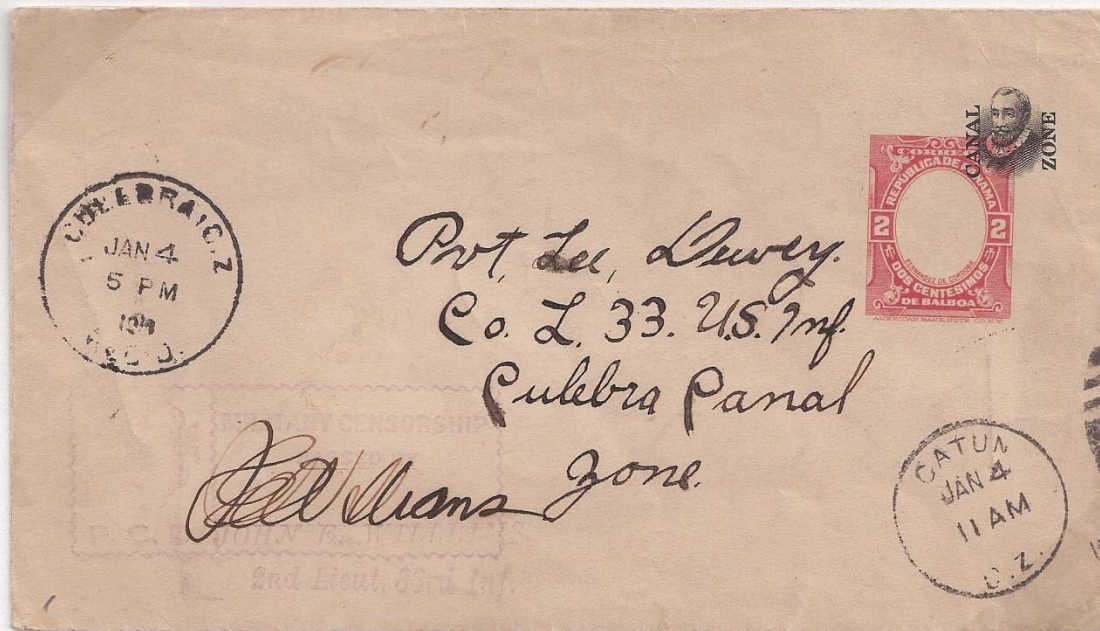 CANAL
ZONE
CORREOS
REPÚBLICA DE PANAMA
2 2
FERNANDEZ DE CORDOBA
DOS CENTESIMOS
DE BALBOA
AMERICAN BANK NOTE CO. N.Y.
CULEBRA C.Z.
JAN 4
5 PM
REC'D.
Pvt, Lee, Dewey.
Co. L. 33. U.S. Inf.
Culebra Canal
Zone.
MILITARY CENSORSHIP
JOHN E. WILLIAMS,
2nd Lieut. 33rd Inf
Williams
GATUN
JAN 4
11 AM
C.Z.